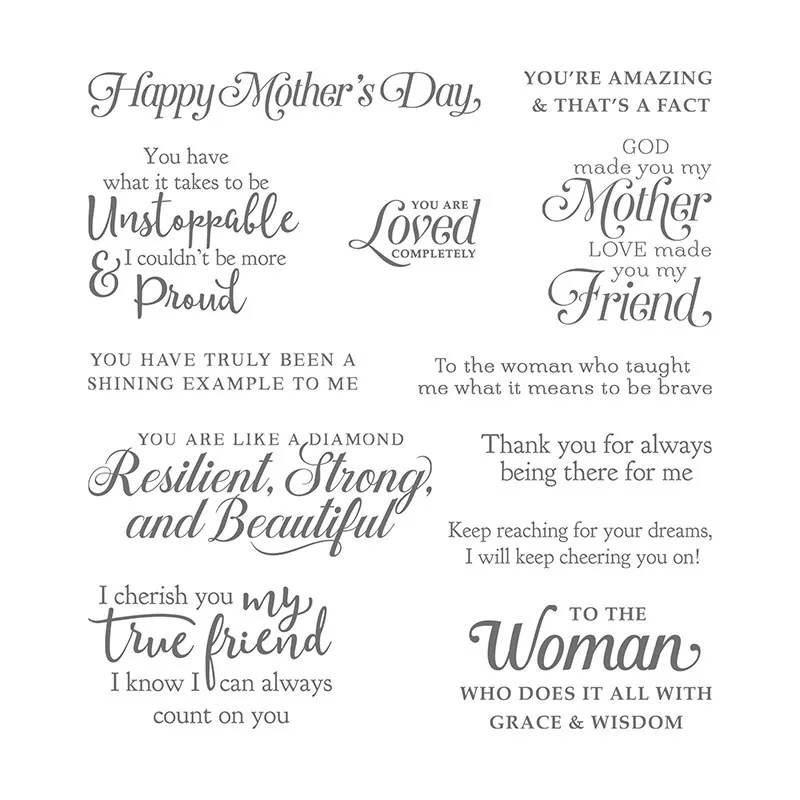 Happy Mother's Day
YOU'RE AMAZING
& THAT'S A FACT
You have
what it takes to be
Unstoppable
& I couldn't be more
Proud
YOU ARE
Loved
COMPLETELY
GOD
made you my
Mother
LOVE made
you my
Friend
YOU HAVE TRULY BEEN A
SHINING EXAMPLE TO ME
To the woman who taught
me what it means to be brave
YOU ARE LIKE A DIAMOND
Resilient, Strong,
and Beautiful
Thank you for always
being there for me
Keep reaching for your dreams,
I will keep cheering you on!
I cherish you my
true friend
I know I can always
count on you
TO THE
Woman
WHO DOES IT ALL WITH
GRACE & WISDOM